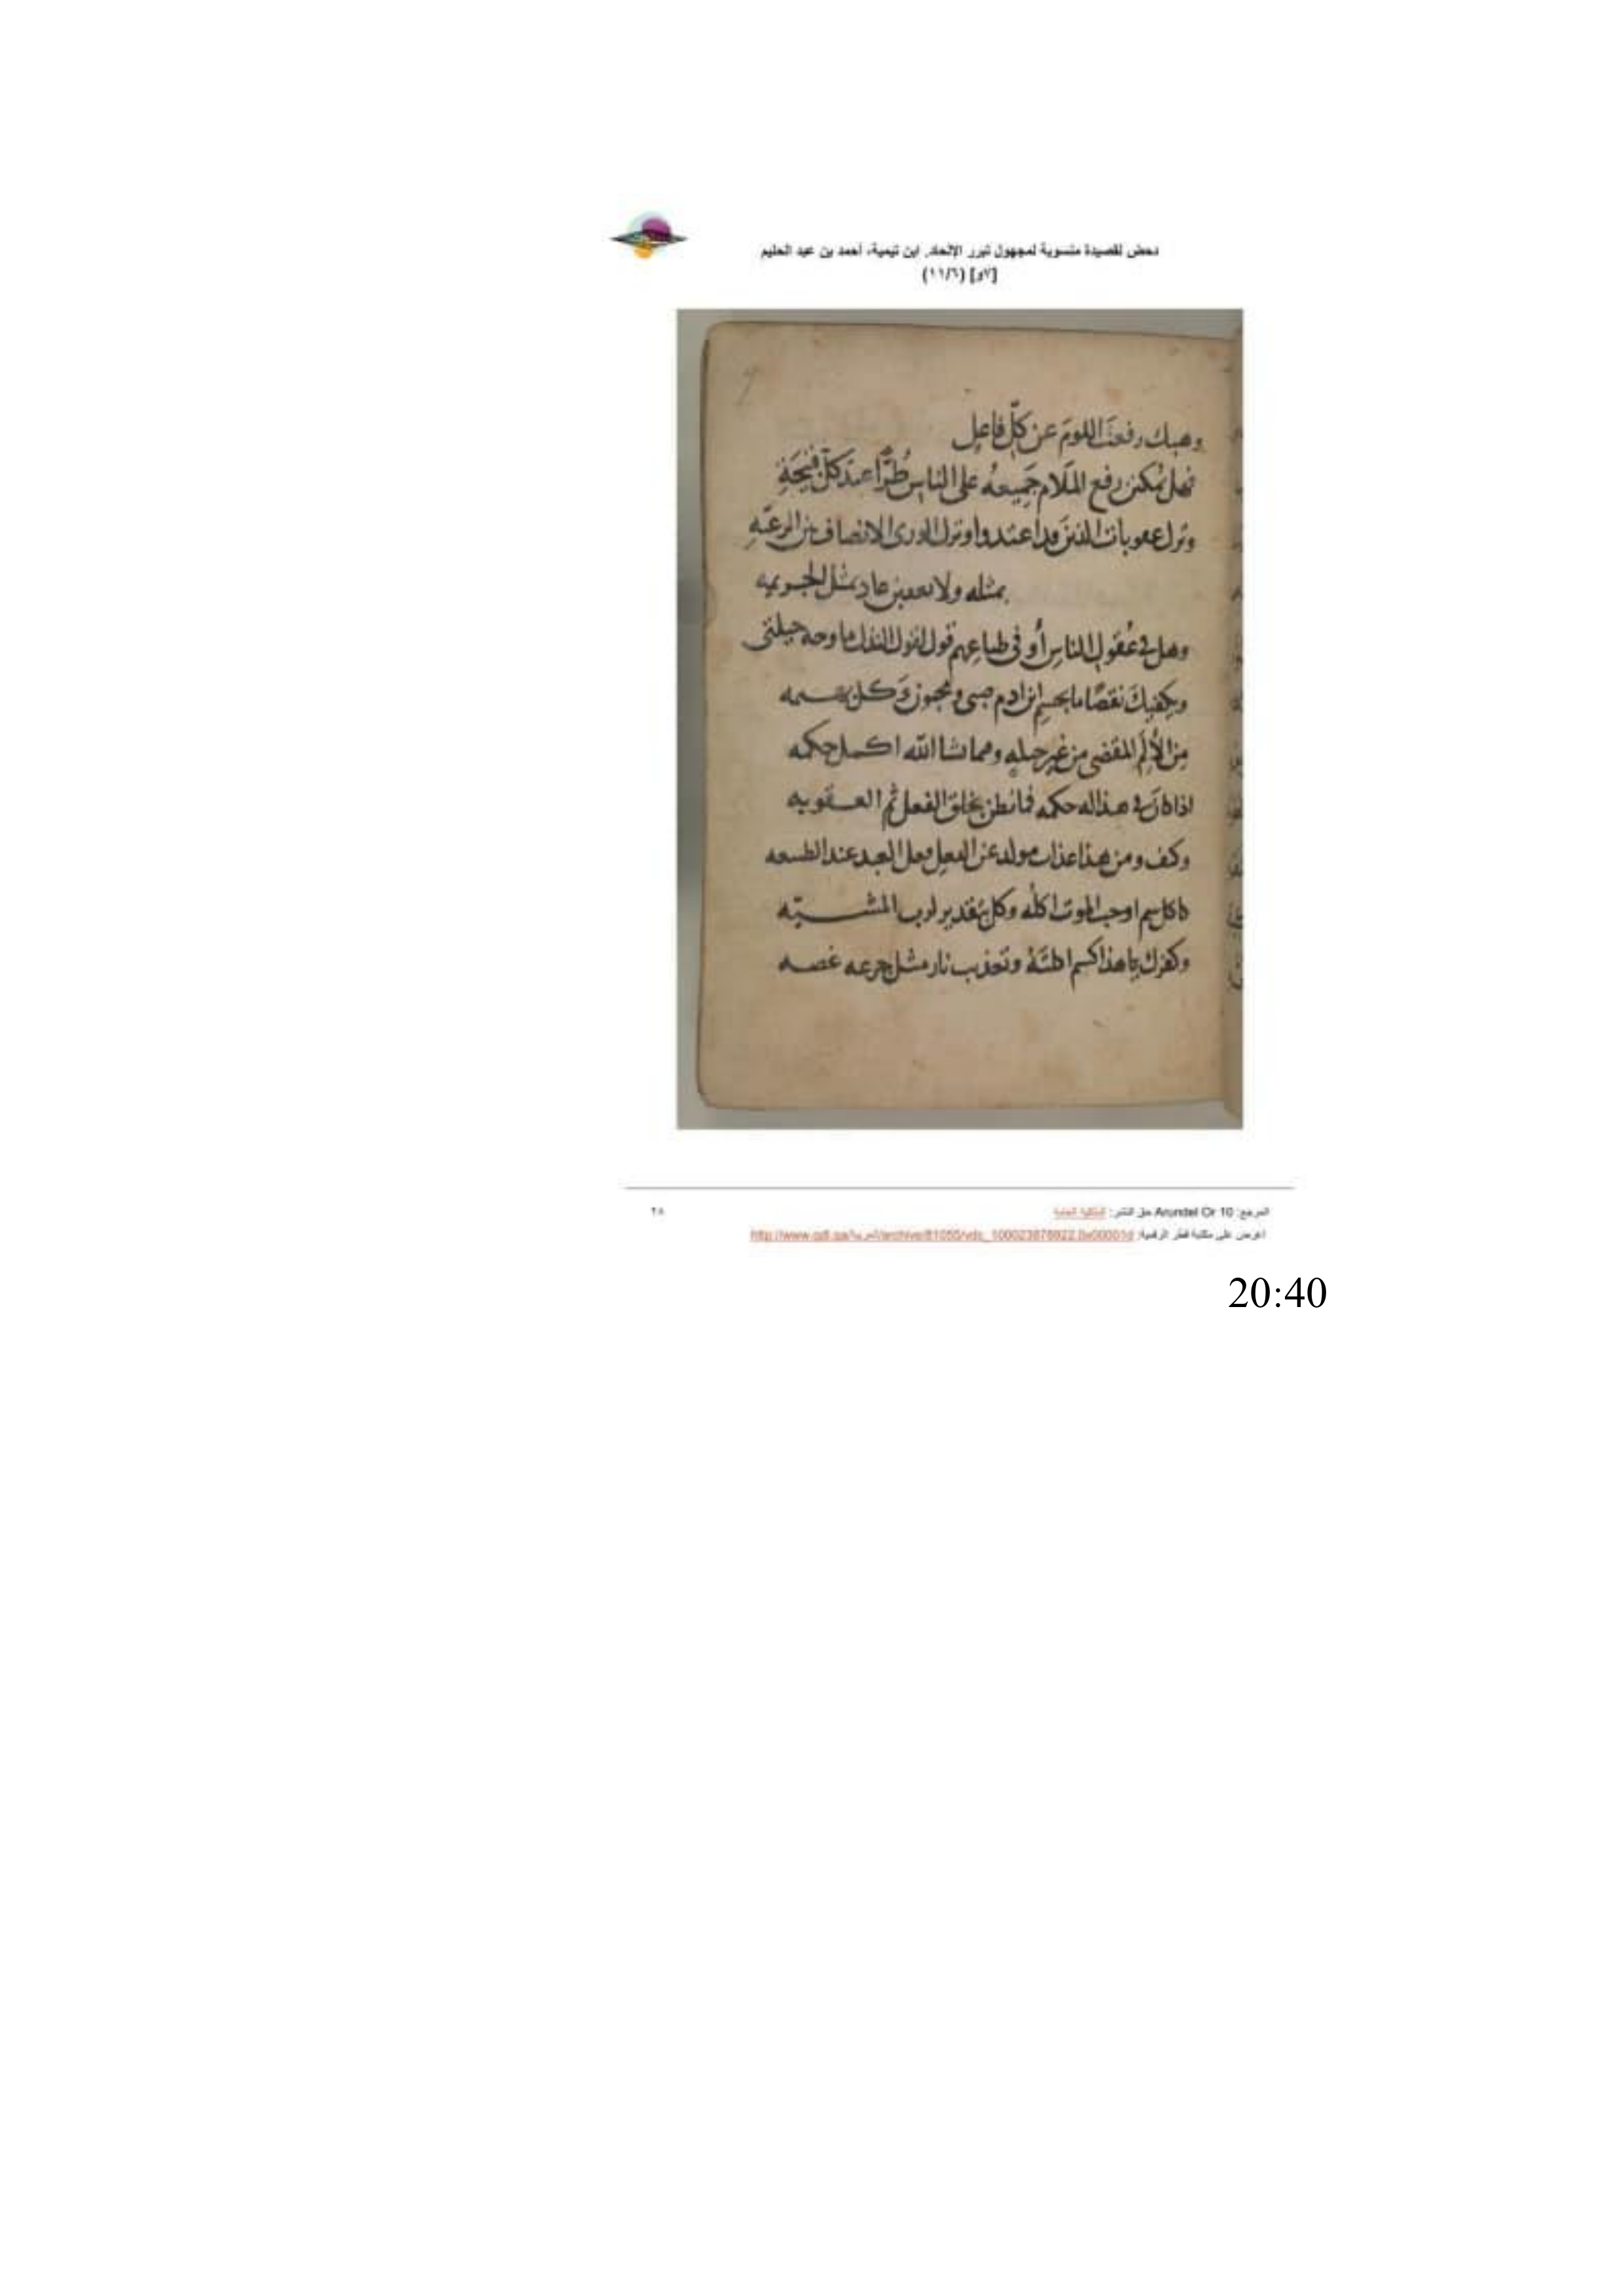 دحض لقصيدة منسوبة لمجهول تبرر الإلحاد. ابن تيمية، أحمد بن عبد الحليم
[٧و] (١١/٦)
وهبك رفعت اللومَ عن كلّ فاعِل
فهل يمكن رفع الملام جميعه على الناس طُرًّا عند كلّ قبيحَةِ
وترك عقوبات الذين قد اعتدوا وترك الورى الانصاف بين الرعيّه
بمثله ولا تعدين عاد بمثل الجريمه
وهل في عُقول الناسِ أو في طباعِهم قول لقول النذل ما وجه حيلتى
ويكفيك نقصًا ما بجسم ابن ادم صبى ومجنون وكل بهيمه
من الألم المقضى من غير حيله ومما شا الله اكمل حكمه
اذا كان في هذا له حكمه فما تظن بخلق الفعل ثم العقوبه
وكيف ومن هذا عذاب مولد عن الفعل فعل العبد عند الطبيعه
كاكل سم اوجب الموت اكله وكل بتقدير لرب المشيّه
وكفرك يا هذا كسم اكلته وتعذيب نار مثل جرعه غصه
المرجع: Arundel Or 10 حق النشر: الملكية العامة
٢٨
اعرض على مكتبة قطر الرقمية:
20:40